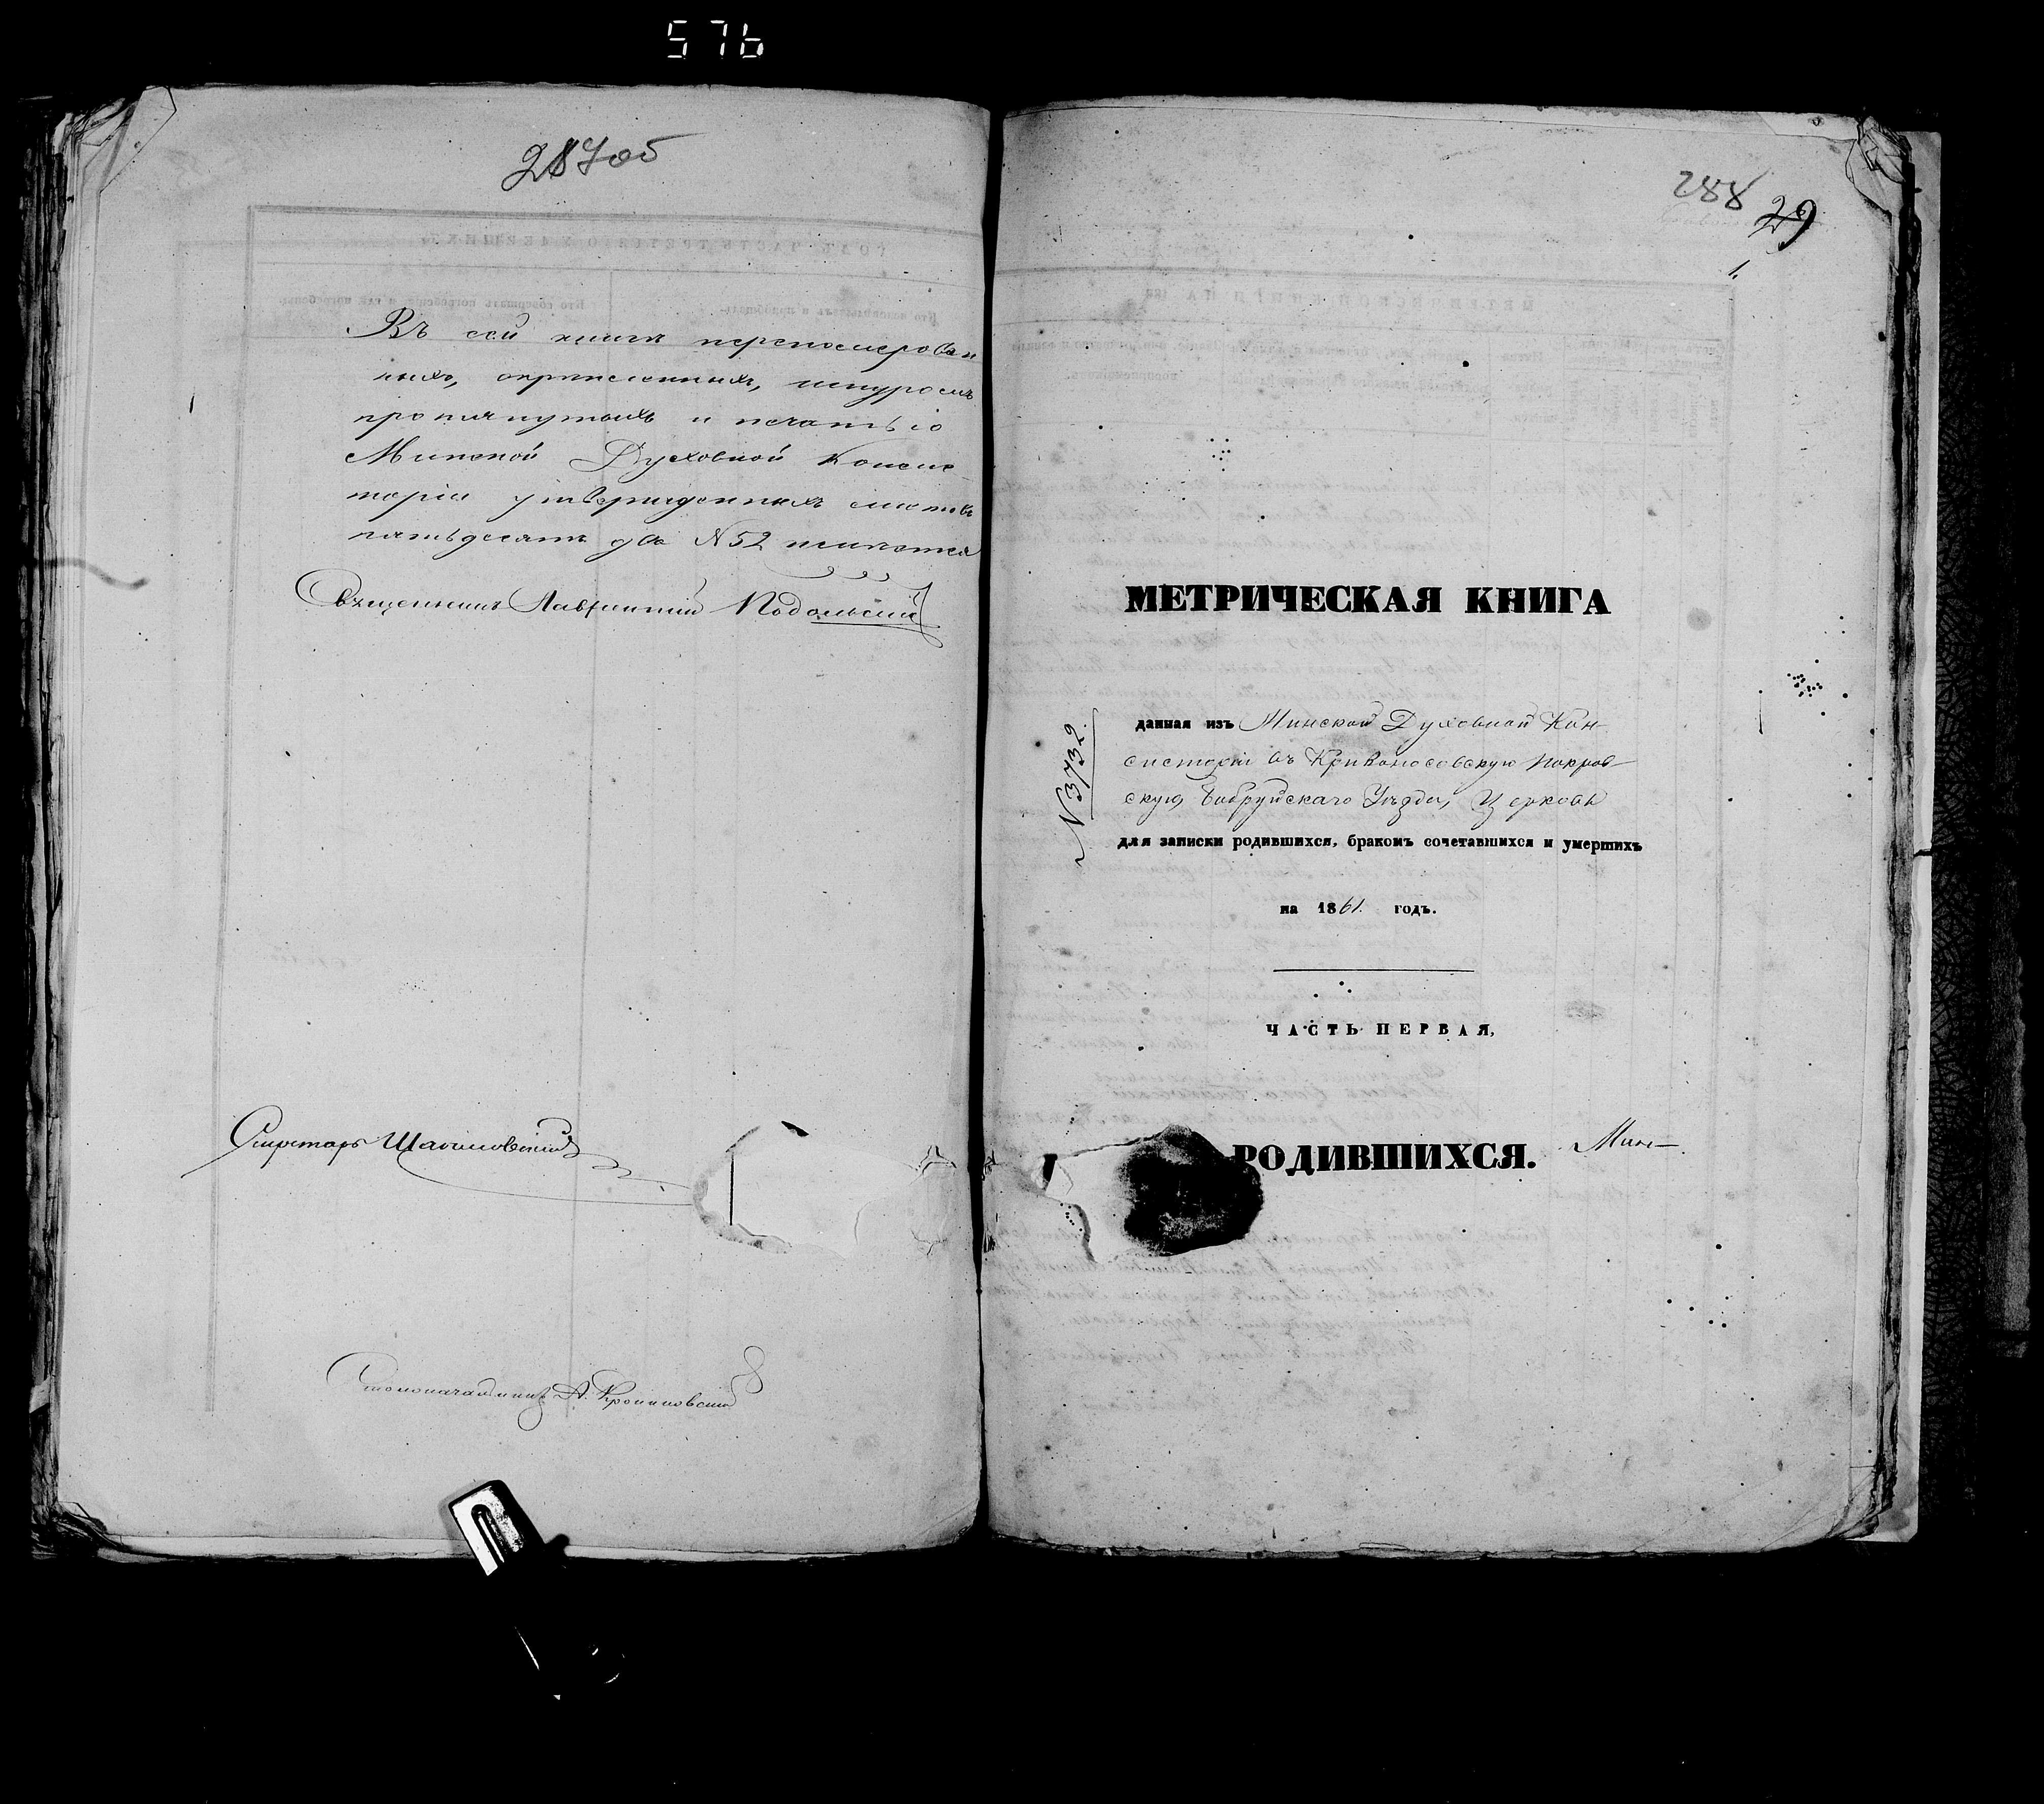 576
287об
Въ сей книгѣ перенумерован
ныхъ, скрѣпленныхъ, шнуромъ
протянутыхъ и печатью
Минской Духовной Консис
торіи утвержденныхъ листовъ
пятьдесятъ два N 52 числится
Священникъ Лаврентій Подольскій
Секретарь
Столоначальникъ А.
288
29
1.
МЕТРИЧЕСКАЯ КНИГА
N 3732
данная изъ Минской Духовной Кон-
систоріи въ Кривоносовскую Покров-
скую, Бобруйскаго Уѣзда, Церковь
для записки родившихся, бракомъ сочетавшихся и умершихъ
на 1861. годъ.
ЧАСТЬ ПЕРВАЯ,
РОДИВШИХСЯ. Мин-